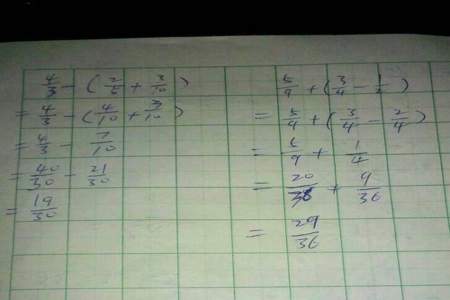 4/3 - (2/5 + 3/10)
= 4/3 - (4/10 + 3/10)
= 4/3 - 7/10
= 40/30 - 21/30
= 19/30
5/9 + (3/4 - 1/2)
= 5/9 + (3/4 - 2/4)
= 5/9 + 1/4
= 20/36 + 9/36
= 29/36